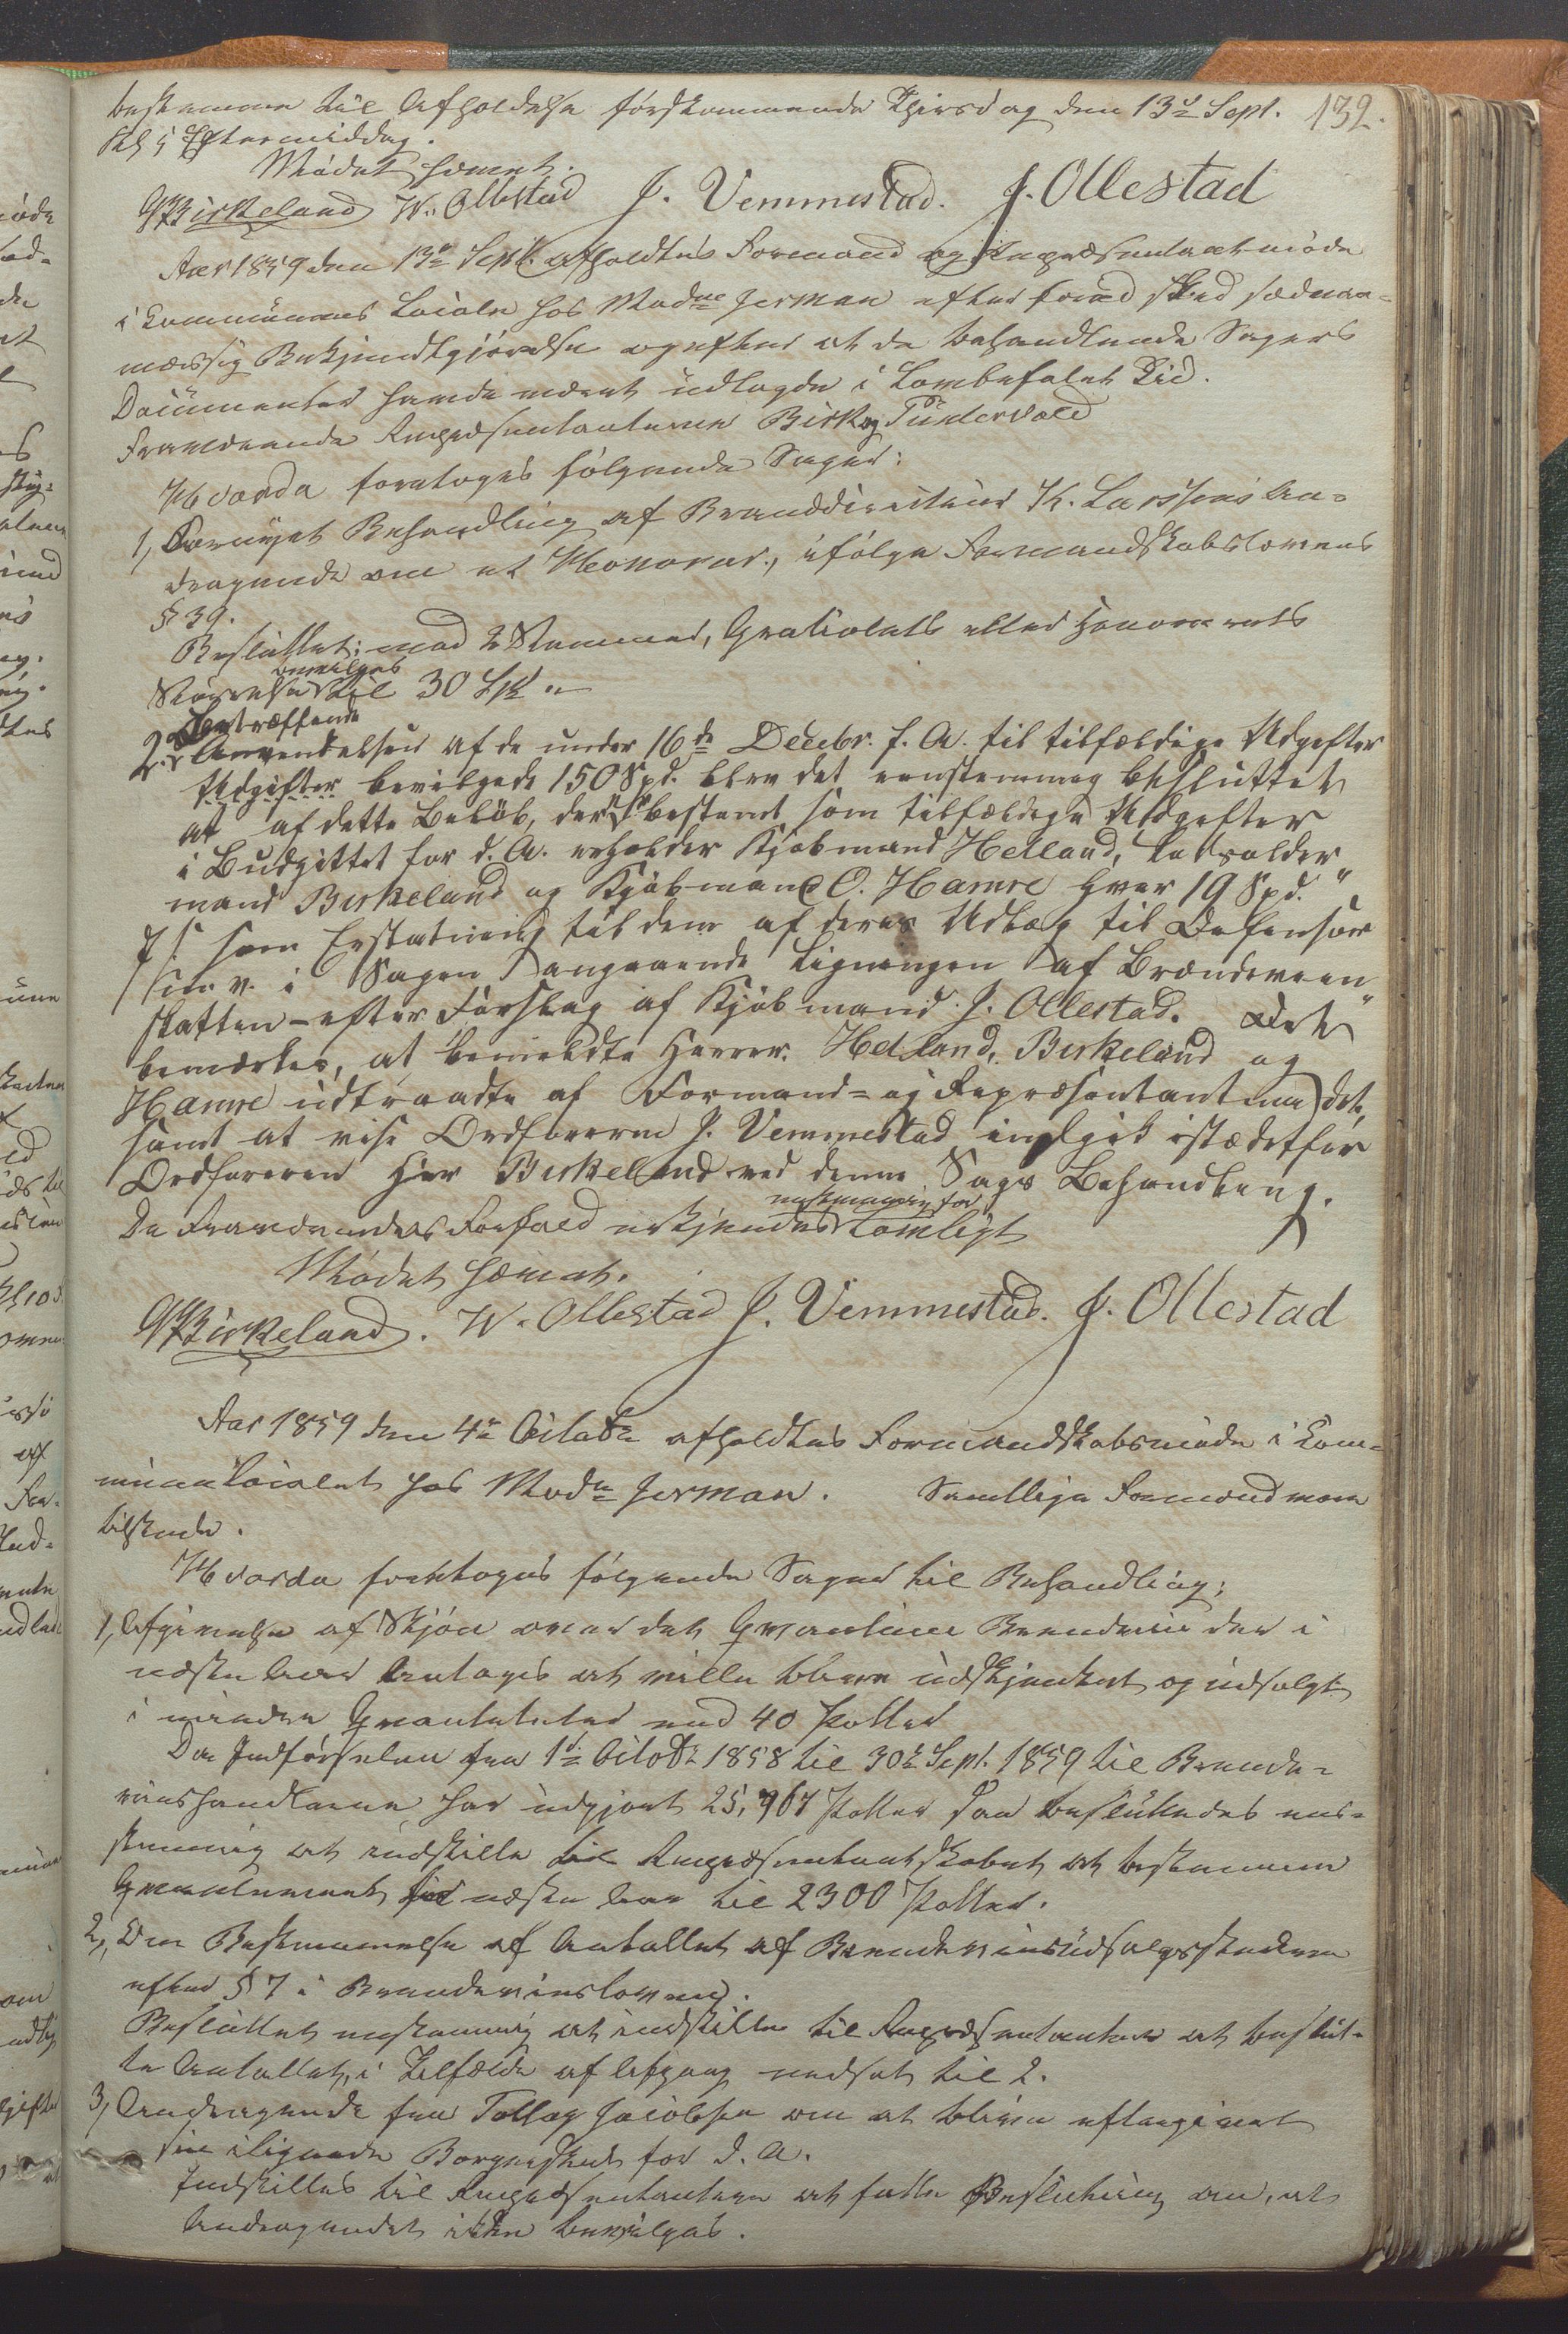 bestemmes til Afholdelse førstkommende Thirsdag den 13de Sept. 132.
Kl 5 Eftermiddag.
Mødet hævet.
Birkeland W. Ollestad J. Vemmestad. J. Ollestad
Aar 1859 den 13de Sept. afholdtes Formand og Repræsentantmøde
i Communens Locale hos Madme Jerman efter forud skeed sædvan-
mæssig Bekjendtgjørelse og efter at de behandlende Sagers
Documenter havde været udlagde i lovbefalet Tid.
Fraværende Repræsentanterne Birk og Tündervold
Hvorda foretoges følgende Sager:
1, Fornyet Behandling af Branddirecteur K. Larssens An-
dragende om et Honorar, ifølge Formandskabslovens
§ 39.
Besluttet: mod 2 Stemmer, Gratialets eller Honorarets
bevilges
Størrelse til 30 Spd "
Betræffende
2. Anvendelsen af de under 16de Decebr. f. A. til tilfældige Udgifter
Udgifter bevilgede 150 Spd. blev det eenstemmig besluttet
at af dette Beløb, der er bestemt som tilfældige Udgifter
i Budgittet for d. A. erholder Kjøbmand Helland,
mand Birkeland og Kjøbmand O. Hamre hver 19 Spd. "
som Erstatning til dem af deres Udlæg til Defensor
m. v. i Sagen angaaende Ligningen af Brændeveen
skatten - efter Forslag af Kjøbmand J. Ollestad. Det
bemærkes, at bemeldte Herrer Helland, Birkeland og
Hamre udtraadte af Formand- og Repræsentantmødet,
samt at vise Ordføreren J. Vemmestad indgik istædetfor
Ordføreren Herr Birkeland ved denne Sags Behandling.
eenstemmig for
De Fraværendes Forfald erkjendes lovligt
Mødet hævet.
Birkeland. W. Ollestad J. Vemmestad. J. Ollestad
Aar 1859 den 4de Octobr afholdtes Formandskabsmøde i Com-
munelocalet hos Madme Jerman. Samtlige Formænd vare
tilstede.
Hvorda foretoges følgende Sager til Behandling:
1, Afgivelse af Skjøn over det Qvantum Brændeviin der i
næste Aar antages at ville blive udskjænket og udsolgt
i mindre Qvantiteter end 40 Potter
Da Indførselen fra 1ste Octobr 1858 til 30te Sept. 1859 til Brænde-
viinshandlerne har udgjort 25,967 Potter saa besluttedes een-
stemmig at indstille til Repræsentantskabet at bestemme
Qvantumet for næste Aar til 2300 Potter.
2, Om Bestemmelse af Antallet af Brændeviinsudsalgsstederne
efter § 7 i Brændeviinsloven.
Besluttet eenstemmig at indstille til Repræsentanterne at beslut-
te Antallet, i Tilfælde af Afgang nedsat til 2.
3, Andragende fra Tollag Jacobsen om at blive eftergivet
sin ilignede Borgerskat for d. A.
Indstilles til Repræsentanterne at fatte Beslutning om, at
Andragendet ikke bevilges.